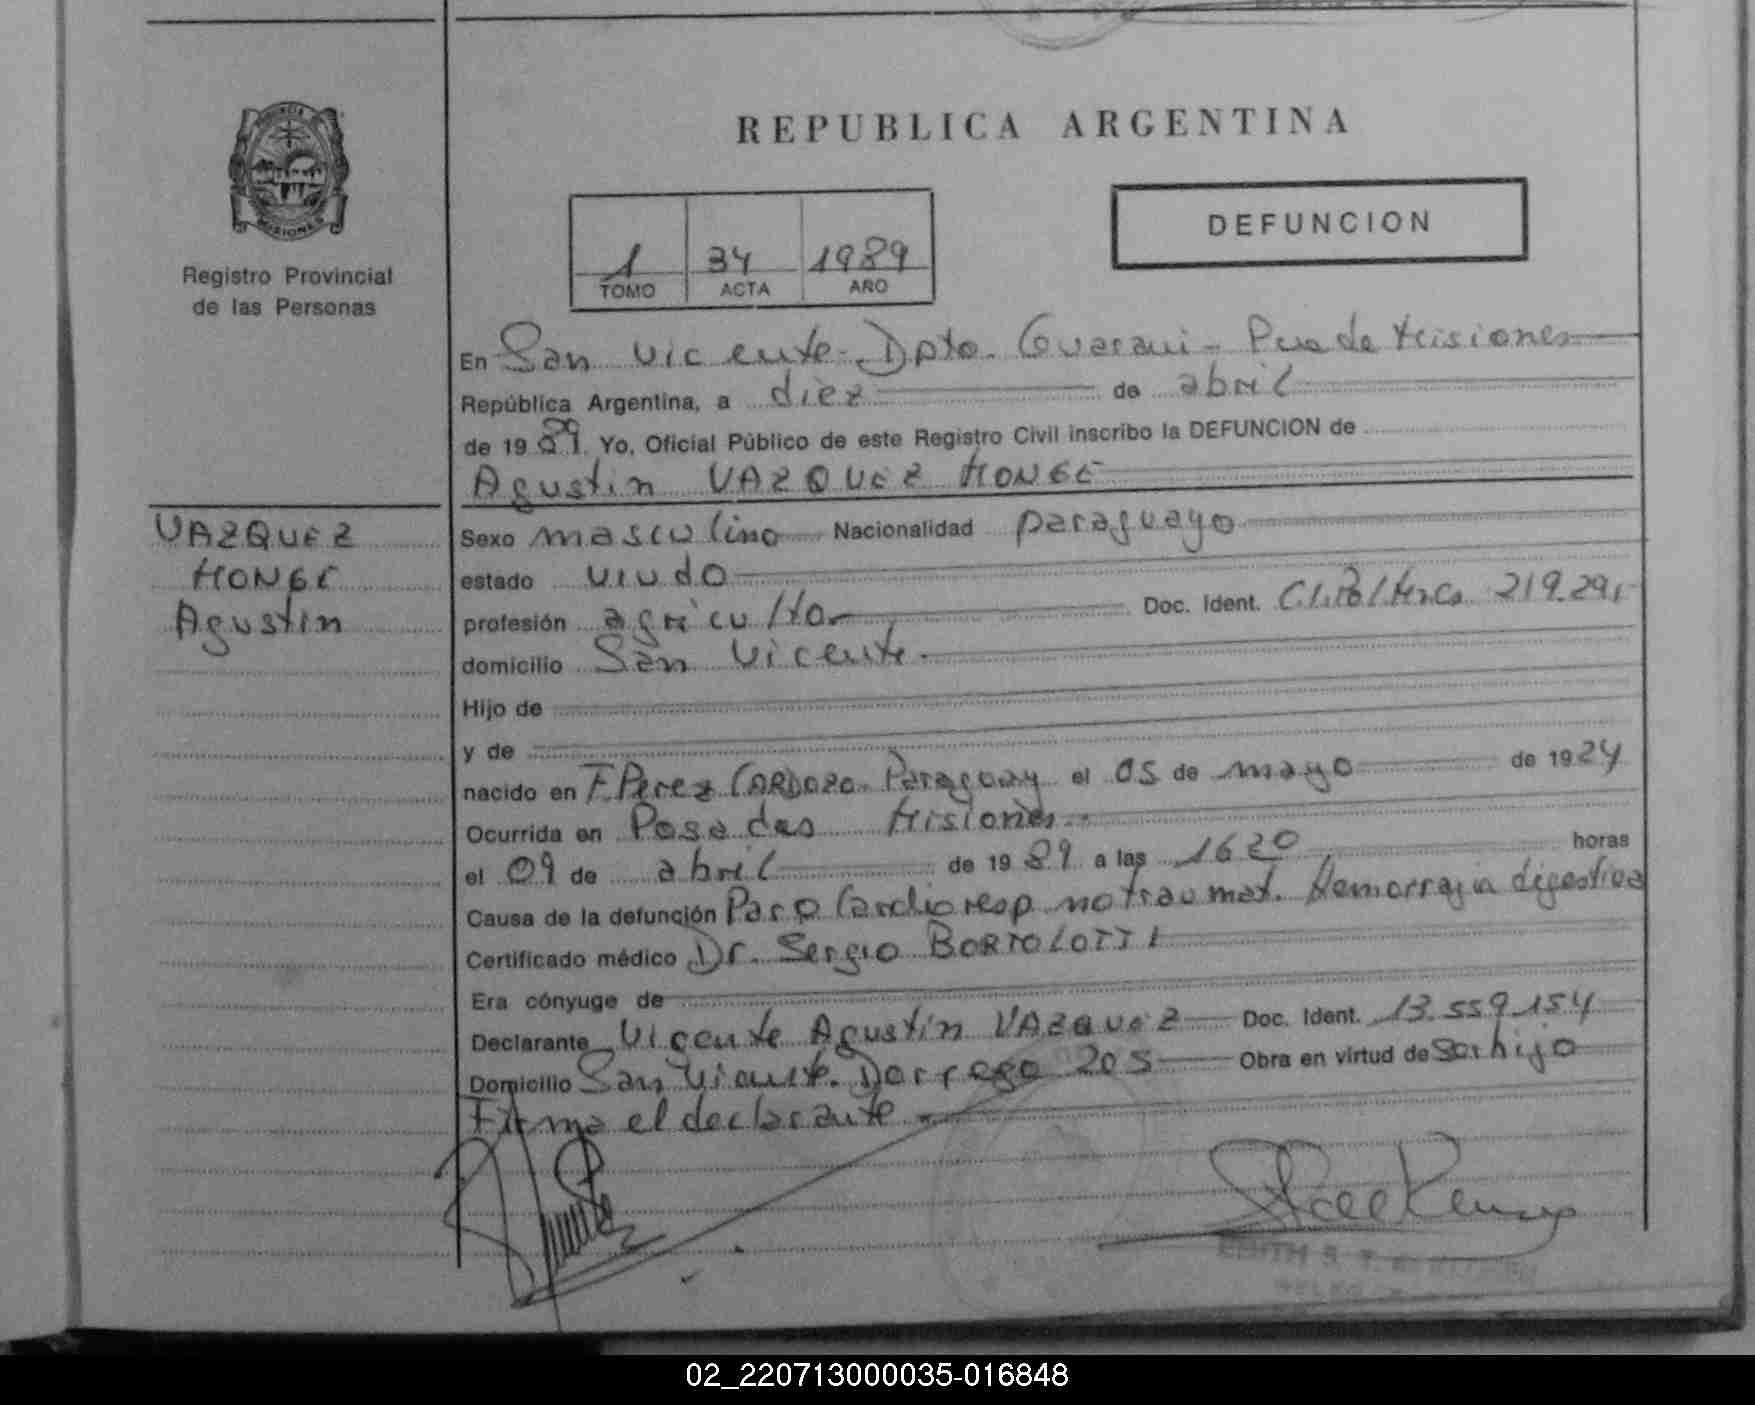 REPUBLICA ARGENTINA
MISIONES
Registro Provincial
de las Personas
1 34 1989
TOMO ACTA AÑO
DEFUNCION
En San Vicente - Dpto. Guarani - Pcia de Misiones
República Argentina, a diez de abril
de 1989. Yo, Oficial Público de este Registro Civil inscribo la DEFUNCION de
Agustin VAZQUEZ MONGE
VAZQUEZ
MONGE
Agustin
Sexo masculino Nacionalidad paraguayo
estado viudo
profesión agricultor Doc. Ident. C.I.Pol Mnes 219.291
domicilio San Vicente.
Hijo de
y de
nacido en F. Perez CARDOZO. Paraguay el 05 de mayo de 1924
Ocurrida en Posadas Misiones
el 09 de abril de 1989 a las 1620 horas
Causa de la defunción Paro Cardioresp no traumat. Hemorragia digestiva
Certificado médico Dr. Sergio BORTOLOTTI
Era cónyuge de
Declarante Vicente Agustin VAZQUEZ Doc. Ident. 13.559.154
Domicilio San Vicente. Dorrego 205 Obra en virtud de Ser hijo
Firma el declarante
EDITH S. T.
02_220713000035-016848